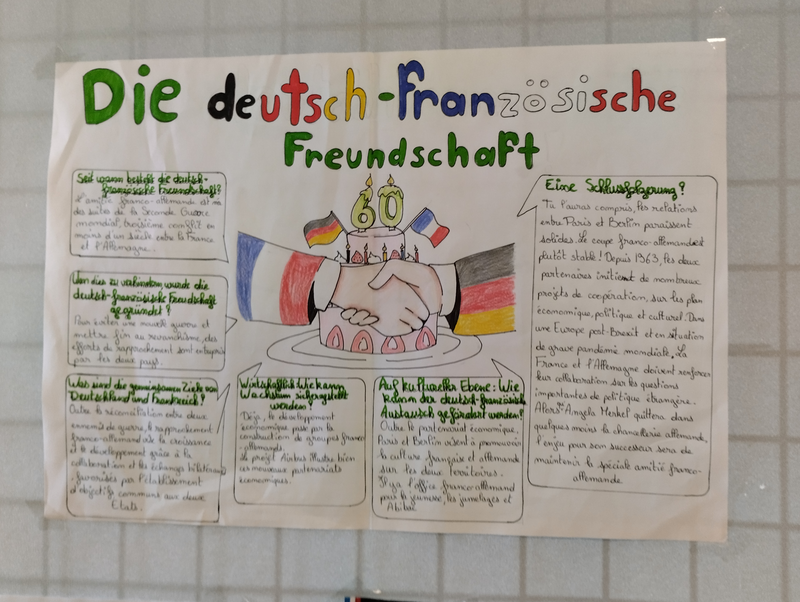 Die deutsch-französische
Freundschaft
60
Seit wann besteht die deutsch-
französische Freundschaft?
L'amitié franco-allemande est née
des suites de la Seconde Guerre
mondial, troisième conflit en
moins d'un siècle entre la France
et l'Allemagne.
Um dies zu verhindern, wurde die
deutsch-französische Freundschaft
gegründet?
Pour éviter une nouvelle guerre et
mettre fin au revanchisme, des
efforts de rapprochement sont entrepris
par les deux pays.
Was sind die gemeinsamen Ziele von
Deutschland und Frankreich?
Outre la réconciliation entre deux
ennemis de guerre, le rapprochement
franco-allemand vise la croissance
et le développement grâce à la
collaboration et les échanges bilatéraux
favorisés par l'établissement
d'objectifs communs aux deux
États.
Wirtschaftlich: Wie kann
Wachstum sichergestellt
werden?
Déjà, le développement
économique passe par la
construction de groupes franco-
allemands.
Le projet Airbus illustre bien
ces nouveaux partenariats
économiques.
Auf kultureller Ebene: Wie
kann der deutsch-französische
Austausch gefördert werden?
Outre le partenariat économique,
Paris et Berlin aisent à promouvoir
la culture française et allemande
sur les deux territoires.
Il y a l'office franco-allemand
pour la jeunesse, les jumelages et
Abibac
Eine Schlussfolgerung?
Tu l'auras compris, les relations
entre Paris et Berlin paraissent
solides. Le coupe franco-allemand est
plutôt stable! Depuis 1963, les deux
partenaires initient de nombreux
projets de coopération, sur les plan
économique, politique et culturel. Dans
une Europe post-Brexit et en situation
de grave pandémie mondiale, La
France et l'Allemagne doivent renforcer
leur collaboration sur les questions
importantes de politique étrangère.
Alors Angela Merkel quittera dans
quelques mois la chancellerie allemande,
l'enjeu pour son successeur sera de
maintenir la spéciale amitié franco-
allemande